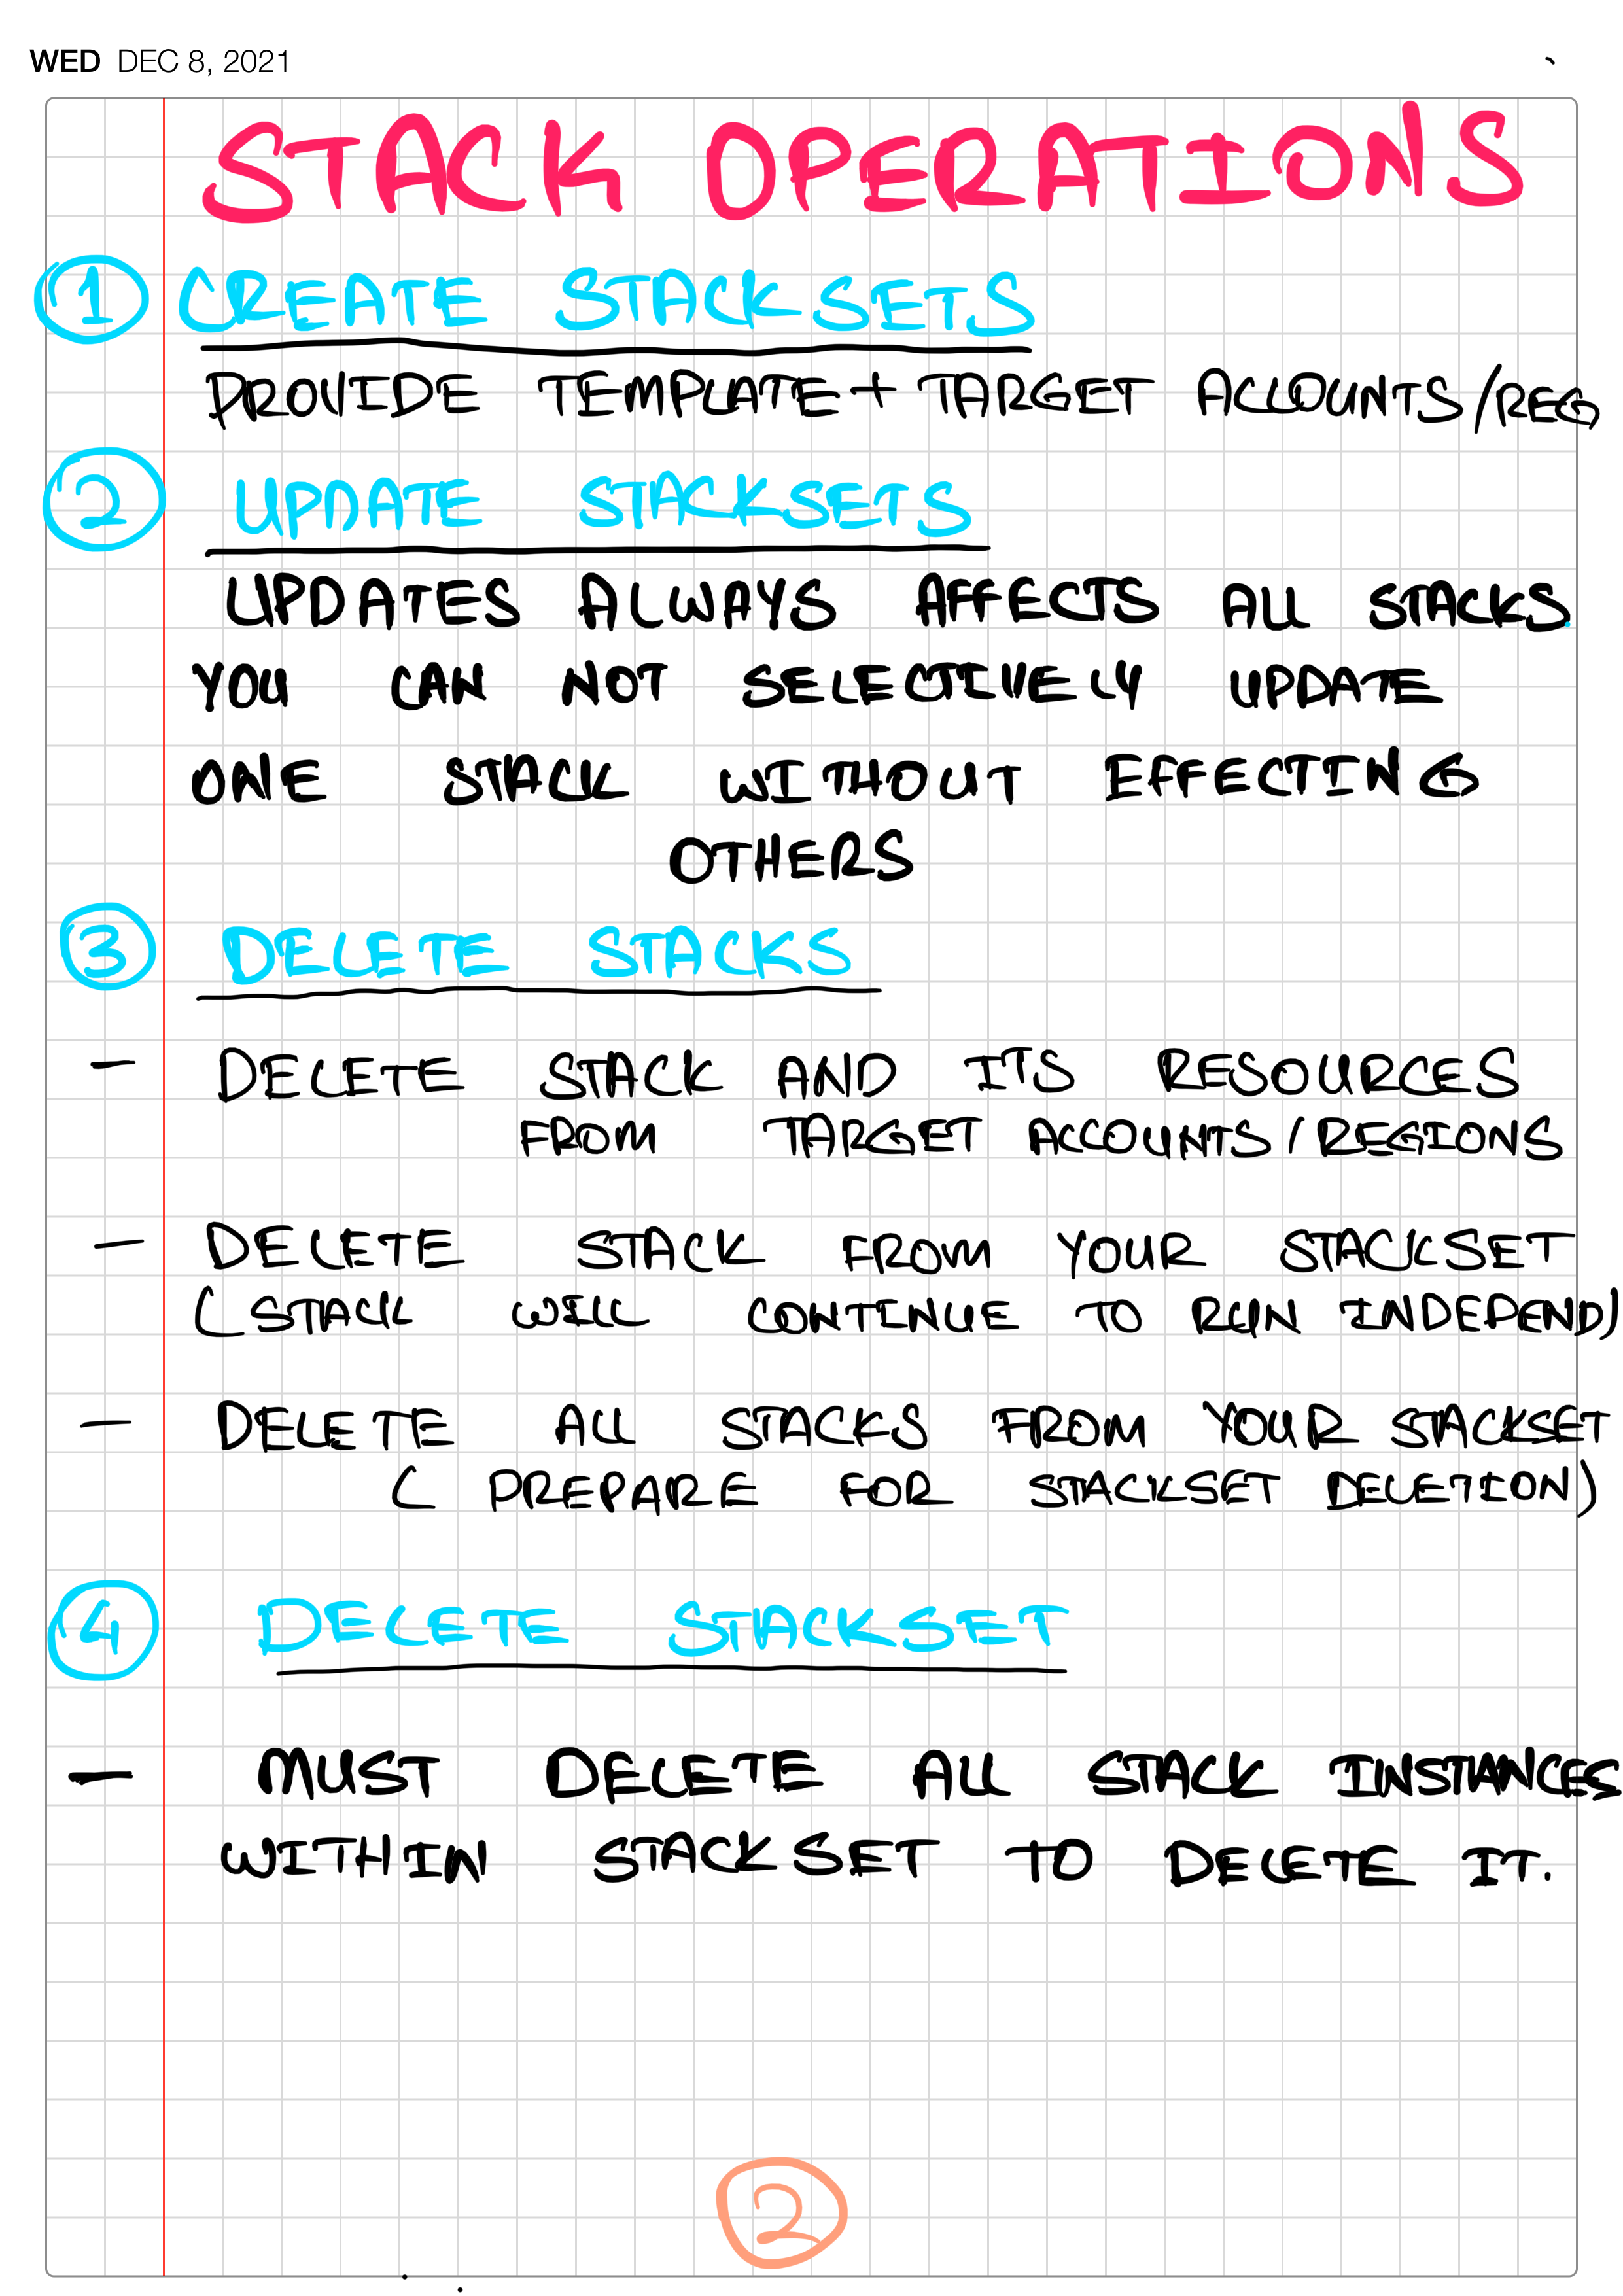 WED DEC 8, 2021
STACK OPERATIONS
1 CREATE STACKSETS
PROVIDE TEMPLATE + TARGET ACCOUNTS/REG
2 UPDATE STACKSETS
UPDATES ALWAYS AFFECTS ALL STACKS.
YOU CAN NOT SELECTIVELY UPDATE
ONE STACK WITHOUT EFFECTING
OTHERS
3 DELETE STACKS
- DELETE STACK AND ITS RESOURCES
FROM TARGET ACCOUNTS/REGIONS
- DELETE STACK FROM YOUR STACKSET
(STACK WILL CONTINUE TO RUN INDEPEND)
- DELETE ALL STACKS FROM YOUR STACKSET
(PREPARE FOR STACKSET DELETION)
4 DELETE STACKSET
- MUST DELETE ALL STACK INSTANCES
WITHIN STACKSET TO DELETE IT.
2